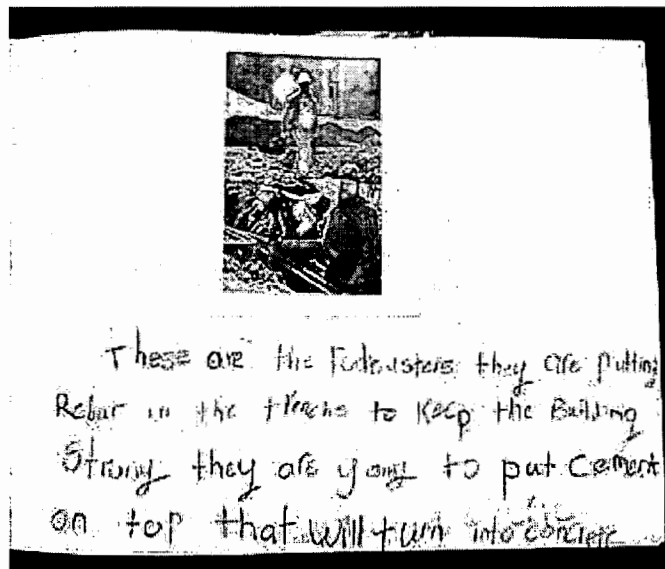 These are the they are putting
Rebar in the to Keep the Building
Strong they are going to put Cement
on top that will turn into concrete